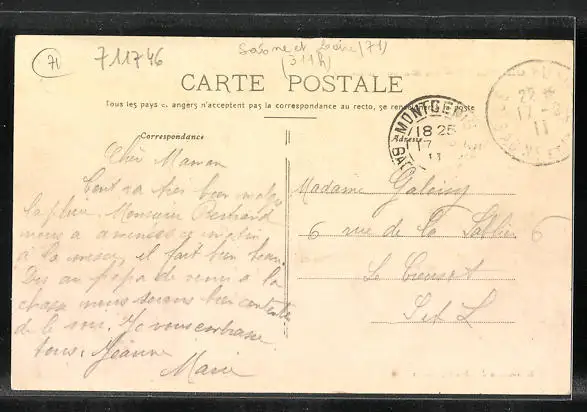 71
711746
Saone et Loire (71)
(311h)
CARTE POSTALE
Tous les pays étrangers n'acceptent pas la correspondance au recto, se renseigner à la poste
Correspondance
Adresse
MONTCENIS
18 25
17
11
22
17
11
Cher Maman
Tout va très bien malgré
la pluie. Monsieur Bertrand
nous a amenées ce matin
à la messe, il fait bien beau.
Dis au papa de venir à la
chasse nous serons bien contente
de le voir. Je vous embrasse
tous. Jeanne
Marie
Madame
6 rue de la Sablière 6
Le Creusot
S et L